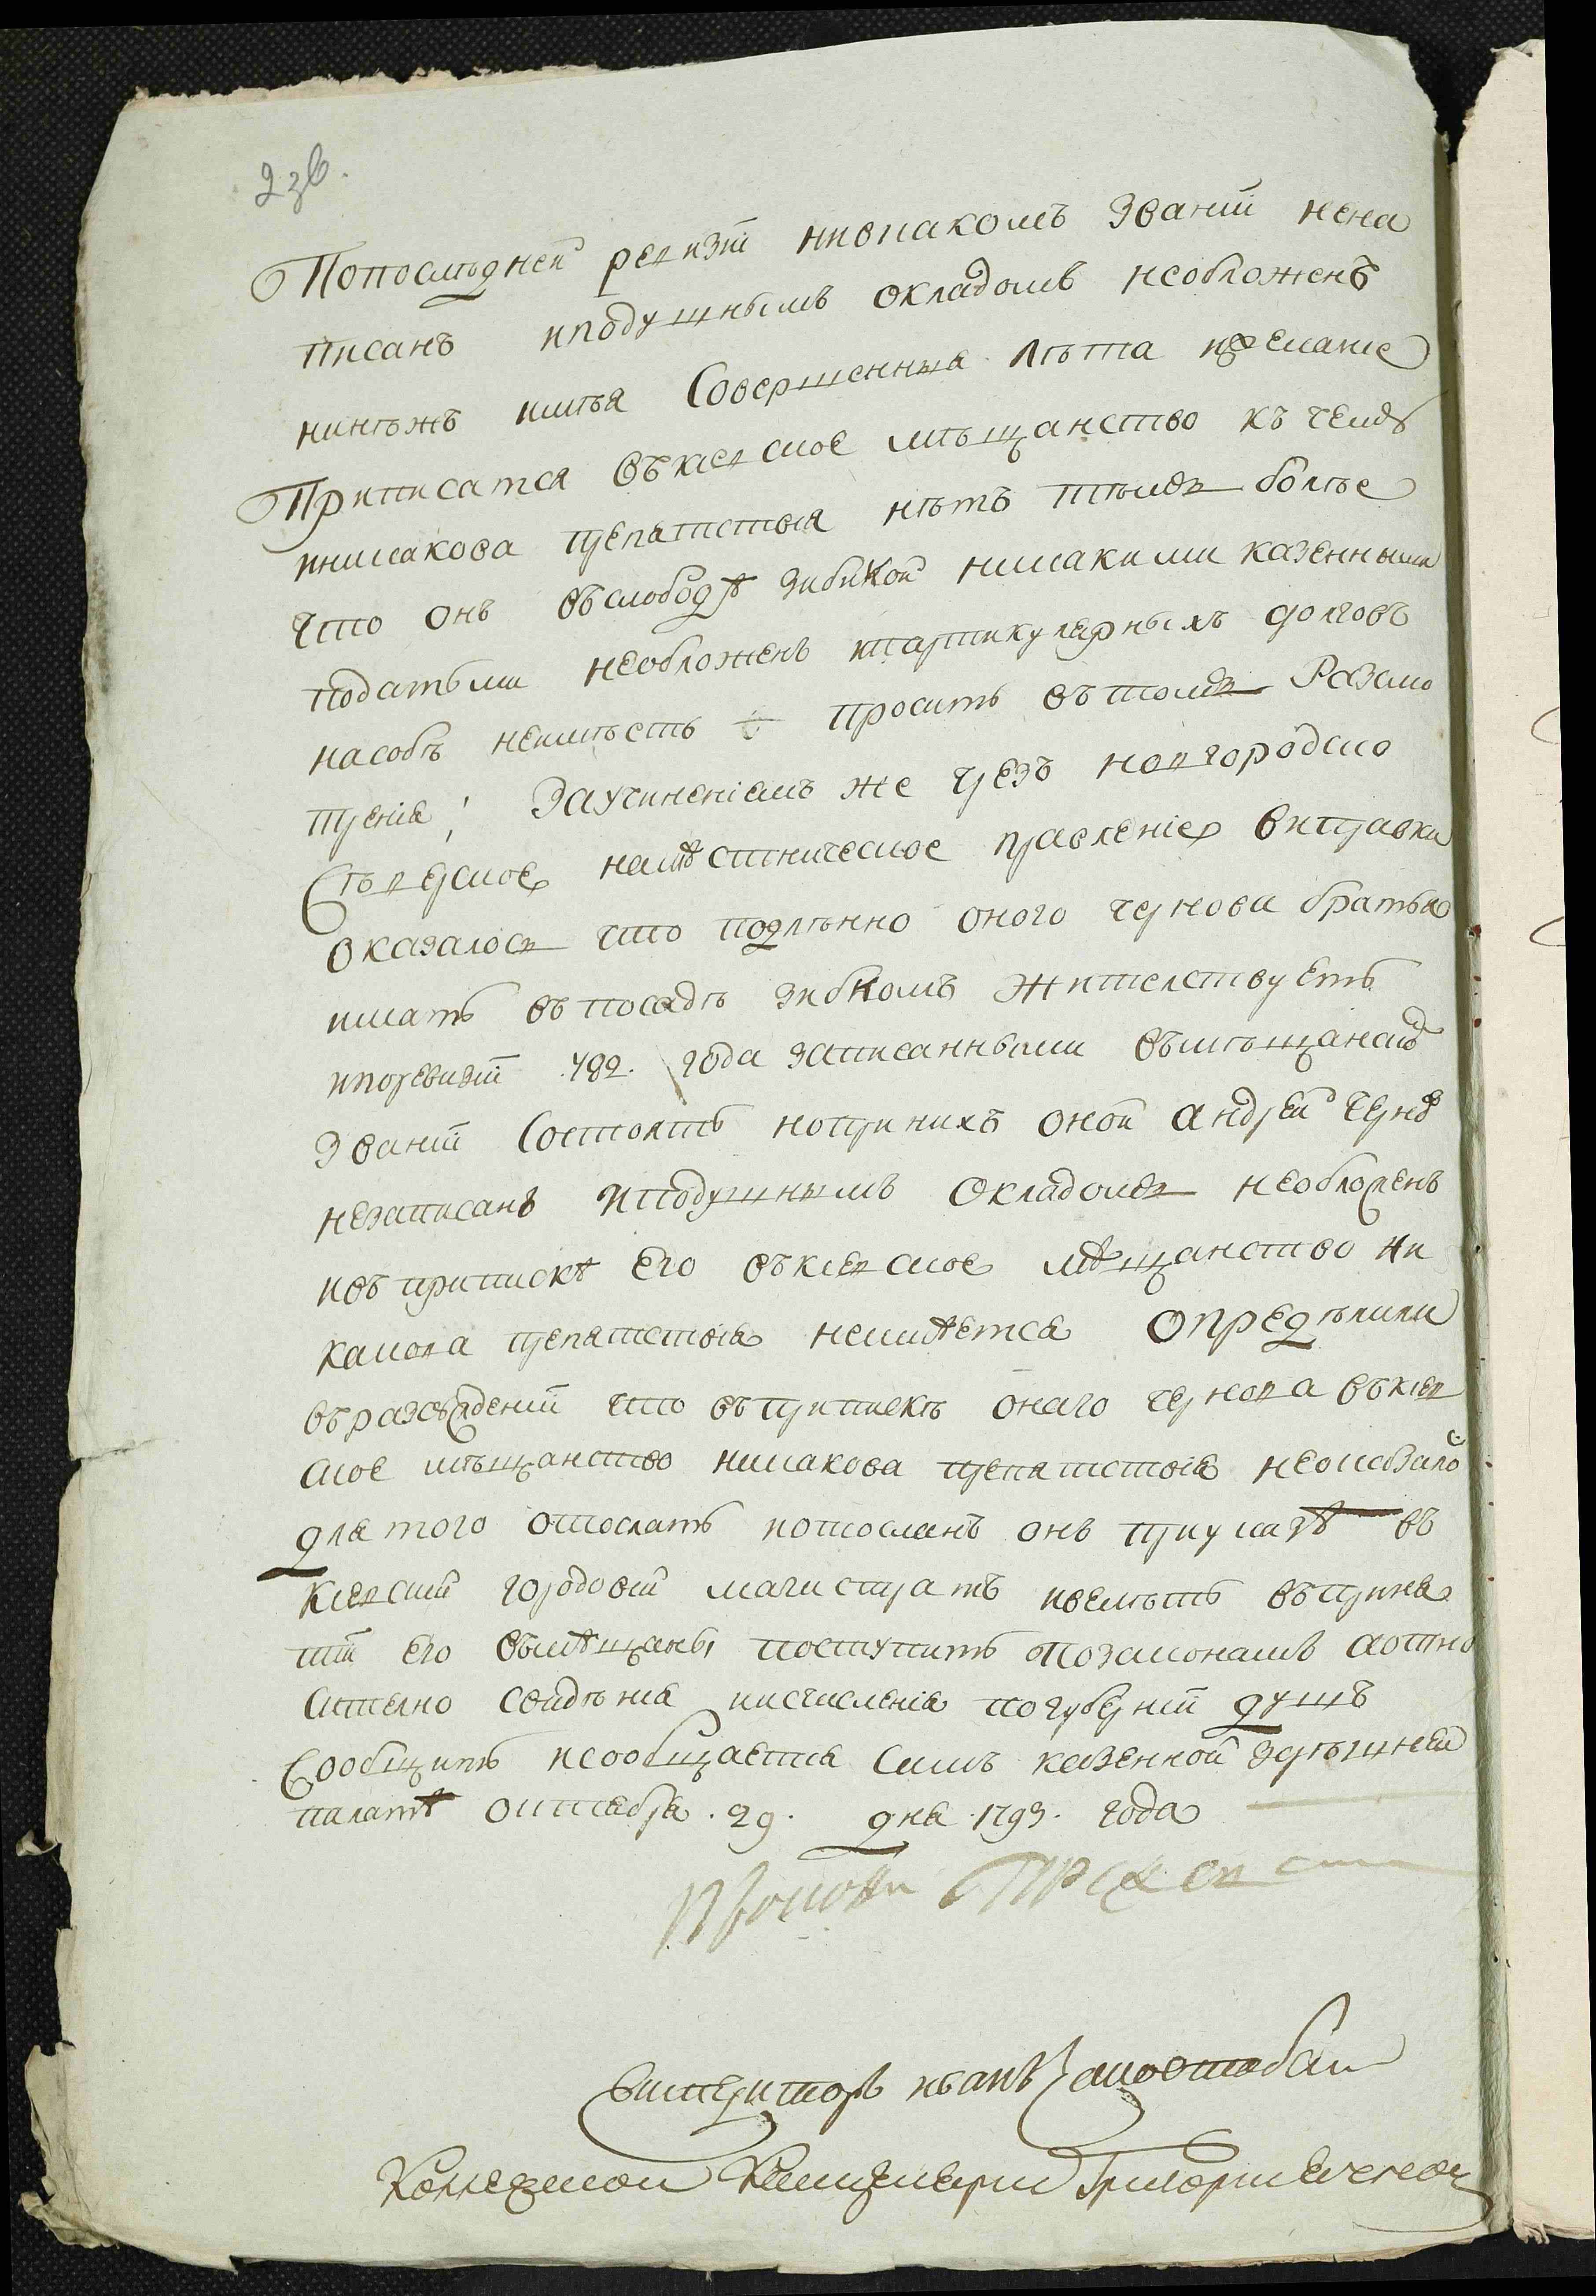 2зв.
Попослѣдней ревизіи нивкакомъ званіи нена
писанъ иподушнымъ окладомъ необложенъ
нинѣжъ имѣя Совершенныя лѣта желаніе
Приписатся въкиевское мѣщанство къ чему
иниакова препятствія нѣтъ тѣмъ болѣе
что онъ въслободѣ Зибкой никакими казенными
податьми необложенъ ипартикулярныхъ долговъ
насобѣ неимѣетъ просить втомъ Разсмо
тренія; Заучиненіемъ же чрезъ новгородско
Сѣверское намѣстническое правленіе виправки
оказалось что подлѣнно оного чернова братья
имать въ посадѣ зибкомъ жителствуетъ
иповревизіи 782. года записанными въмѣщанскомъ
званіи Состоятъ нопринихъ оной андрей черновъ
незаписанъ иподушнымъ окладомъ необложенъ
ивъ припискѣ его въкиевское мѣщанство ни
какова препятствія неимѣется Опредѣлили
въразсуждении что въприпискѣ онаго чернова въкиев
ское мѣщанство никакова препятствія неоказалос
для того отослать иотосланъ онъ приуказѣ въ
киевский городовий магистратъ ивелѣть въприня
тіи его въмѣщаны поступить Позаконамъ аотно
сително свидѣния иисчисленія погубернии душъ
Сообщить исообщается Симъ казенной здѣшней
палатѣ октября .29. дня .1793. года
Коллежской Канцеляристъ Григорий